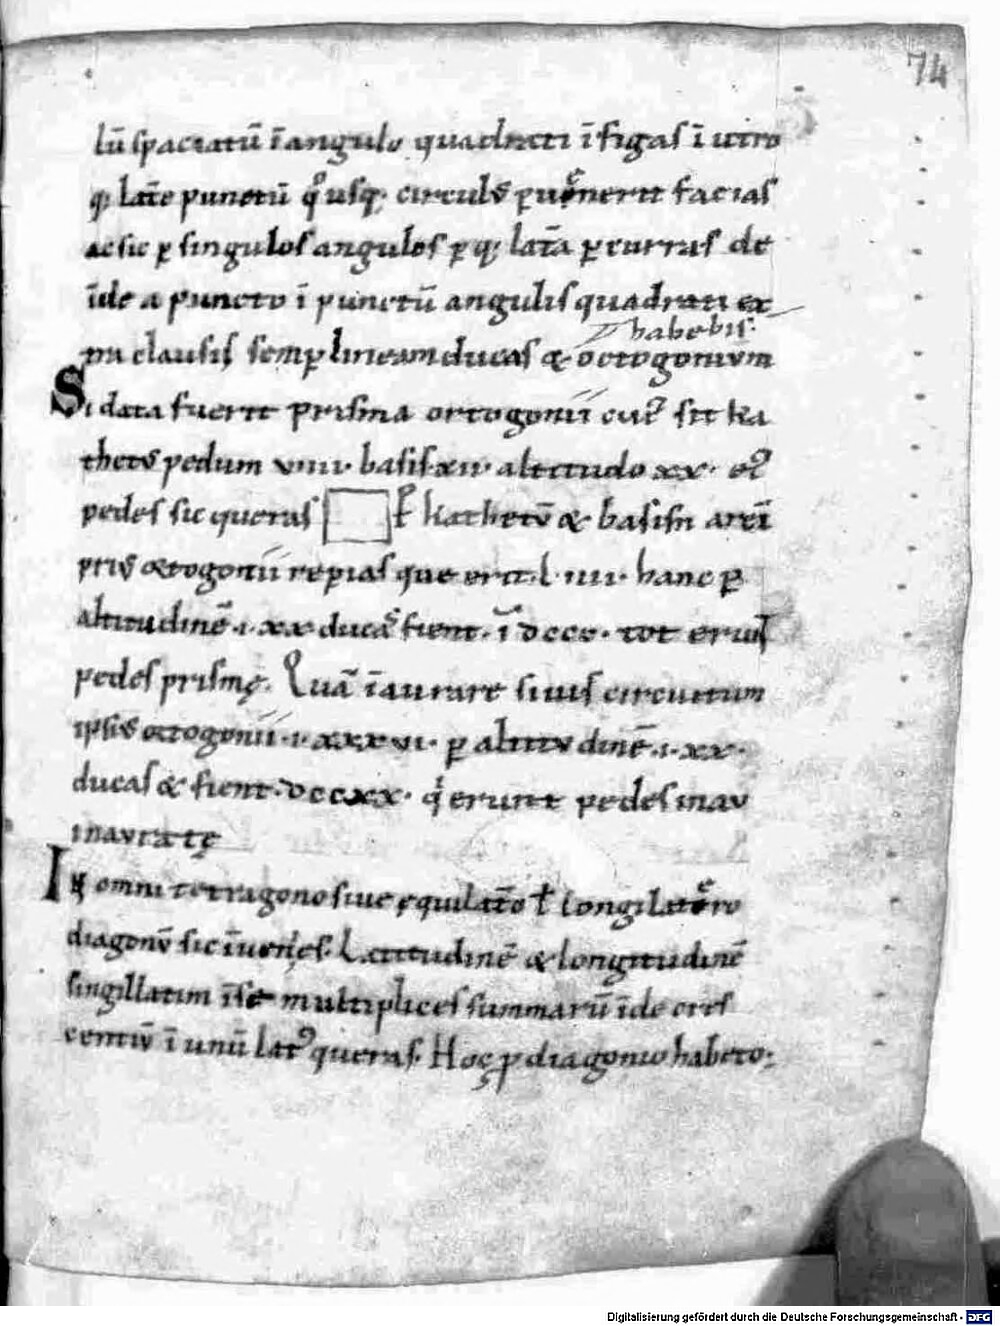 74
lū spaciatū ī angulo quadrati ī figas ī utro
q; late punctū q°usq; circulꝰ ꝑuenerit facias
ac sic ꝑ singulos angulos ꝑ q; latā ꝑcurras de
īde a puncto ī punctū angulis quadrati ex
habebis:
clausis semꝑ lineam ducas & octogonium
Si data fuerit prisma ortogonii cuiꝰ sit ka
thetꝰ pedum viiii· basis·xii· altitudo xx· eiꝰ
pedes sic queras kathetū & basim areā
priꝰ ortogonii repias que erit·l·iiii· hanc ꝑ
altitudinē·i·xx ducas fient·ī dccc· tot erunt
pedes prismę. Quā īaurare si uis circuitum
ipsiꝰ octogonii·i·xxxvi· ꝑ altitudinē·i·xx·
ducas & fient·dccxx· q̇ erunt pedes inau
inauratę
In omni tetragono siue ęquilatero ł longilatero
diagonū sic īuenies· Latitudinē & longitudinē
singillatim ī se multiplices summarū īde cres
centiū ī unū latꝰ queras· Hoc ꝓ diagonio habeto:
Digitalisierung gefördert durch die Deutsche Forschungsgemeinschaft - DFG